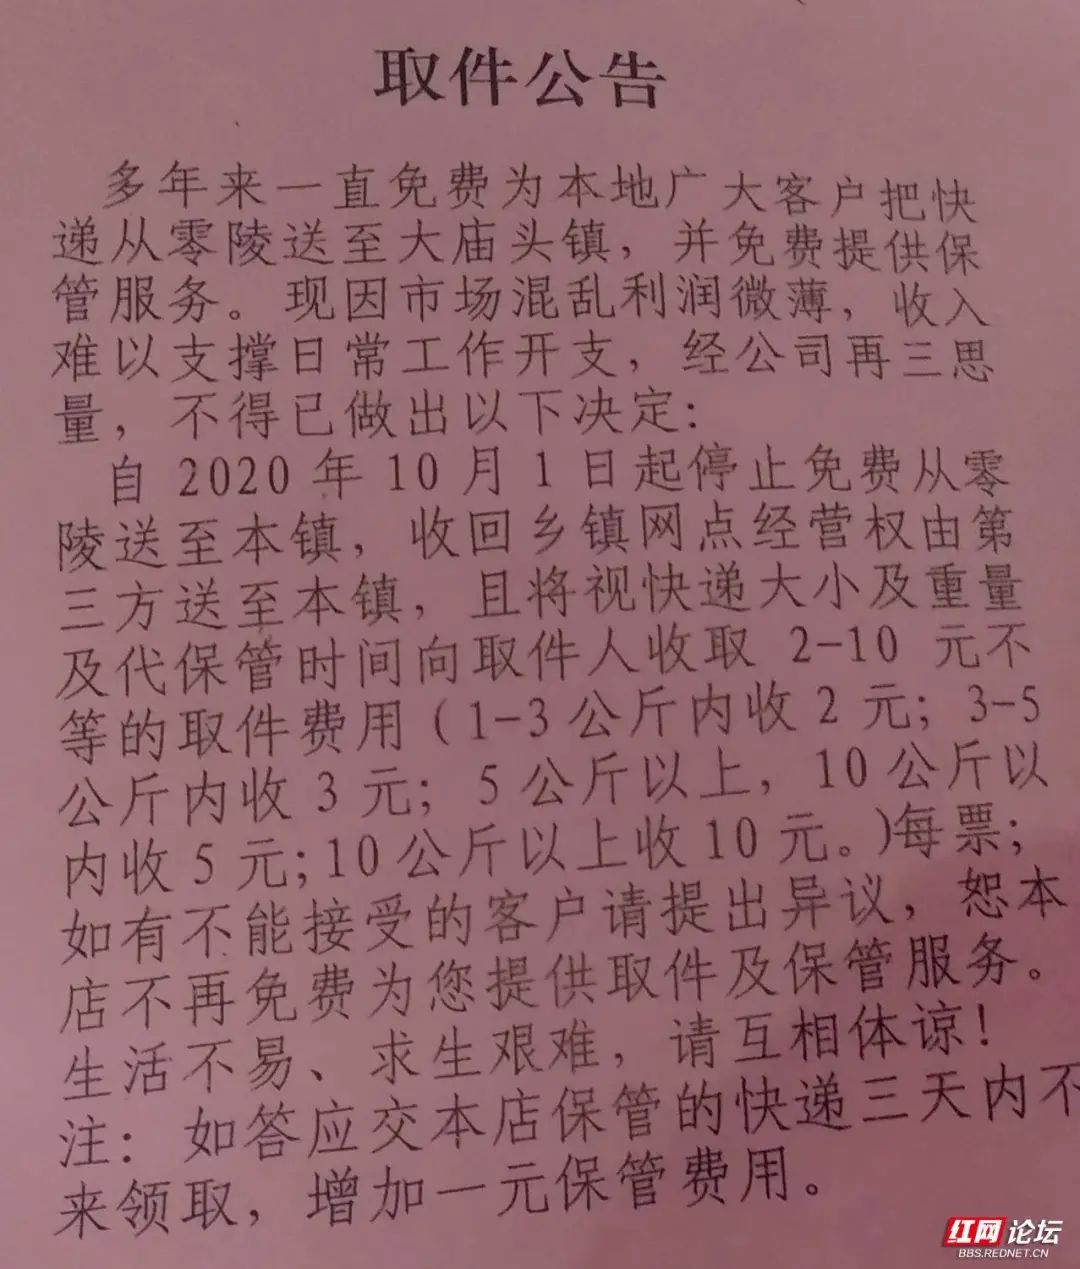 取件公告
多年来一直免费为本地广大客户把快
递从零陵送至大庙头镇，并免费提供保
管服务。现因市场混乱利润微薄，收入
难以支撑日常工作开支，经公司再三思
量，不得已做出以下决定：
自 2020 年 10 月 1 日起停止免费从零
陵送至本镇，收回乡镇网点经营权由第
三方送至本镇，且将视快递大小及重量
及代保管时间向取件人收取 2-10 元不
等的取件费用（1-3 公斤内收 2 元；3-5
公斤内收 3 元；5 公斤以上，10 公斤以
内收 5 元;10 公斤以上收 10 元。)每票；
如有不能接受的客户请提出异议，恕本
店不再免费为您提供取件及保管服务。
生活不易、求生艰难，请互相体谅！
注：如答应交本店保管的快递三天内不
来领取，增加一元保管费用。
红网论坛
BBS.REDNET.CN